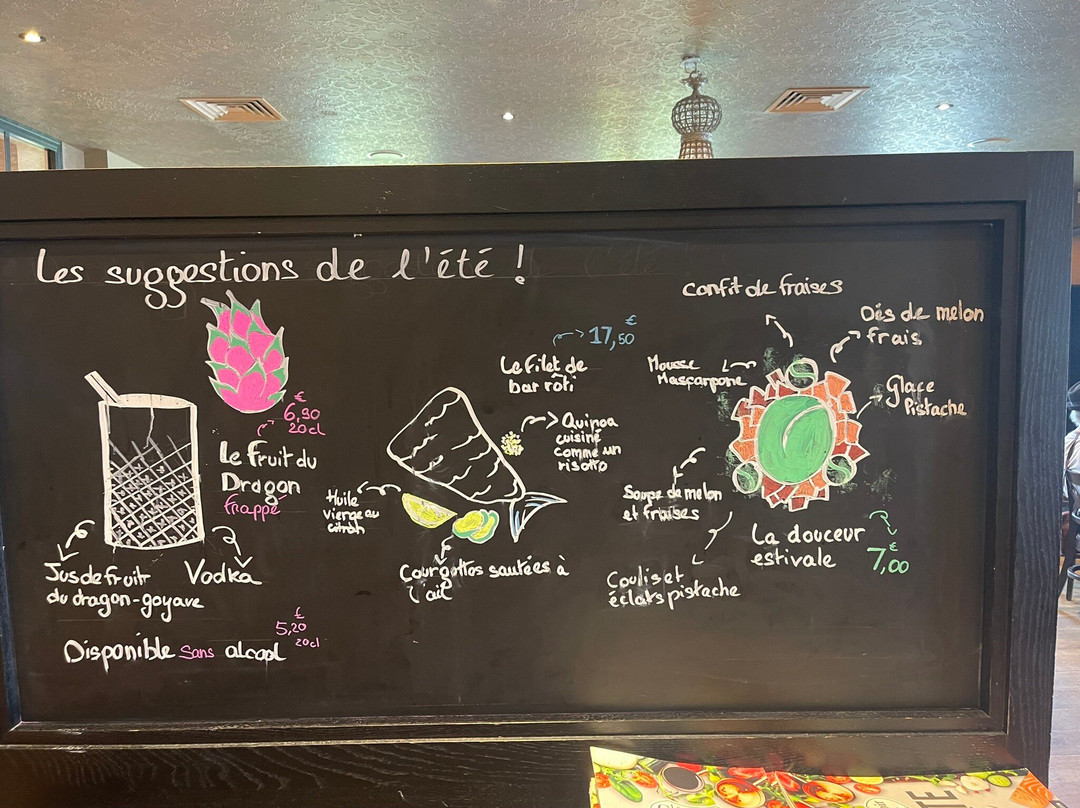 Les suggestions de l'été !
€
6,90
20cl
Le Fruit du
Dragon
frappé
Jus de fruit
du dragon-goyave
Vodka
€
5,20
20cl
Disponible sans alcool
€
17,50
Le filet de
bar rôti
Quinoa
cuisiné
comme un
risotto
Huile
vierge au
citron
Courgettes sautées à
l'ail
Confit de fraises
Dés de melon
frais
Mousse
Mascarpone
Glace
Pistache
Soupe de melon
et fraises
Coulis et
éclats pistache
La douceur
estivale
€
7,00